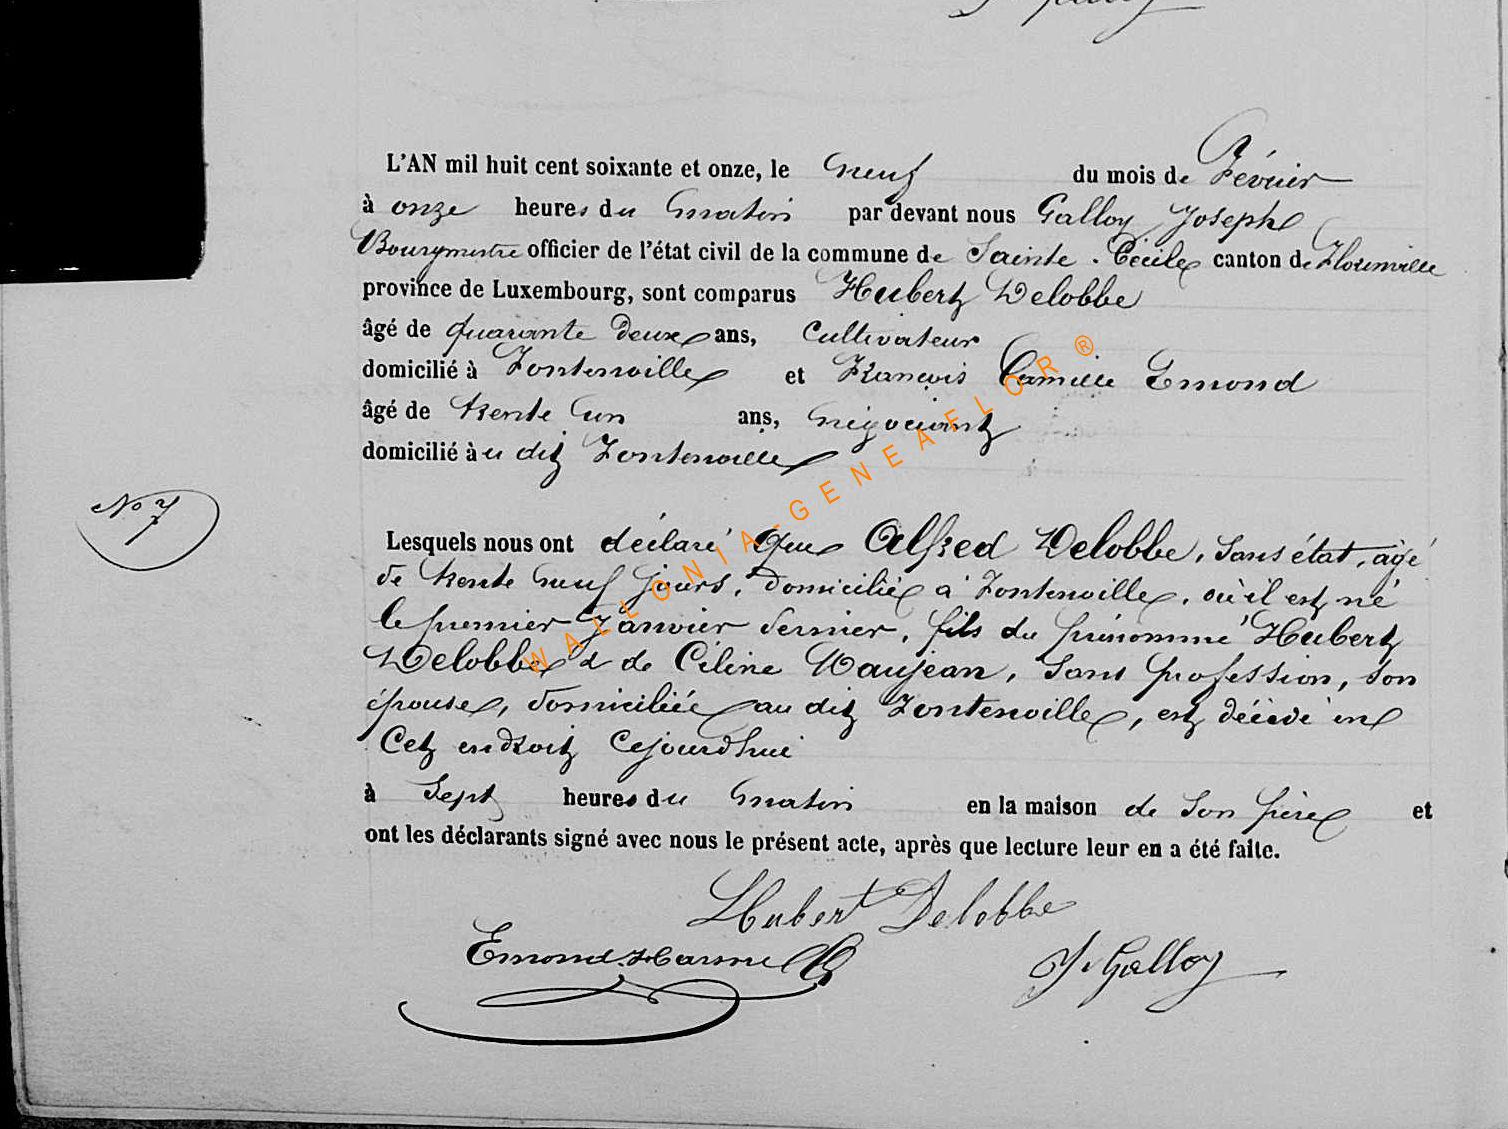 L'AN mil huit cent soixante et onze, le neuf du mois de Février
à onze heures du matin par devant nous Galloy Joseph
Bourgmestre officier de l'état civil de la commune de Sainte-Cécile canton de Florenville
province de Luxembourg, sont comparus Hubert Delobbe
âgé de quarante deux ans, Cultivateur
domicilié à Fontenoille et François Camille Emond
âgé de trente un ans, négociant
domicilié àu dit Fontenoille
No 7
Lesquels nous ont déclaré que Alfred Delobbe, sans état, agé
de trente neuf jours, domicilié à Fontenoille, où il est né
le premier Janvier dernier, fils du prénommé Hubert
Delobbe & de Céline Maujean, sans profession, son
épouse, domiciliée au dit Fontenoille, est décédé en
Cet endroit Cejourd'hui
à Sept heures du matin en la maison de son père et
ont les déclarants signé avec nous le présent acte, après que lecture leur en a été faite.
Hubert Delobbe
Emond
J. Galloy
WALLONIA-GENEAFLOR®